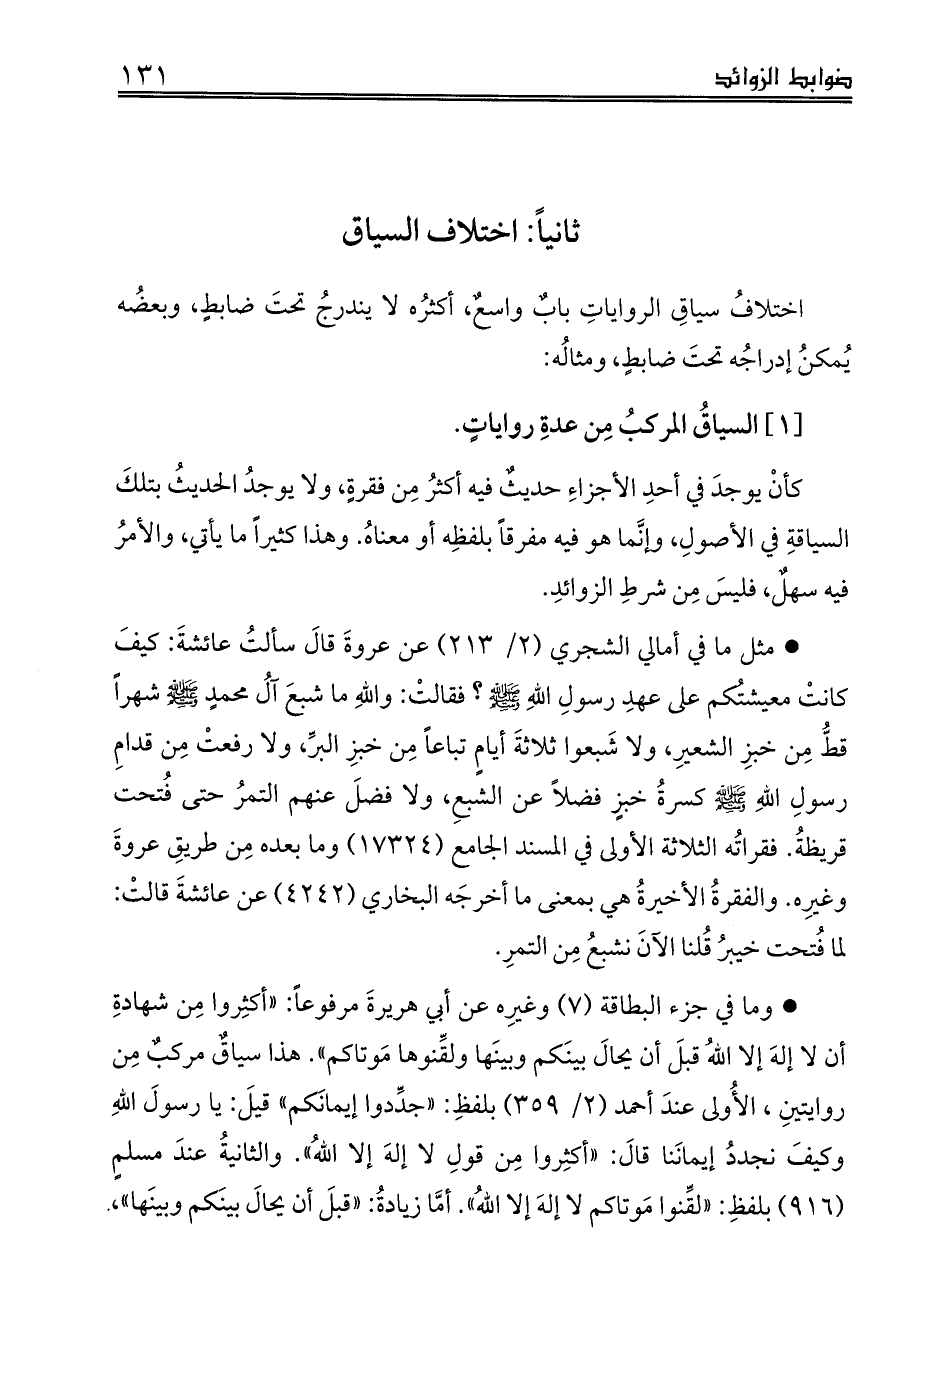 ضوابط الزوائد ١٣١
ثانياً: اختلاف السياق
اختلافُ سياقِ الرواياتِ بابٌ واسعٌ، أكثرُه لا يندرجُ تحتَ ضابطٍ، وبعضُه
يُمكنُ إدراجُه تحتَ ضابطٍ، ومثالُه:
[١] السياقُ المركبُ مِن عدةِ رواياتٍ.
كأنْ يوجدَ في أحدِ الأجزاءِ حديثٌ فيه أكثرُ مِن فقرةٍ، ولا يوجدُ الحديثُ بتلكَ
السياقةِ في الأصولِ، وإنَّما هو فيه مفرقاً بلفظِه أو معناهُ. وهذا كثيراً ما يأتي، والأمرُ
فيه سهلٌ، فليسَ مِن شرطِ الزوائدِ.
● مثل ما في أمالي الشجري (٢/ ٢١٣) عن عروةَ قالَ سألتُ عائشةَ: كيفَ
كانتْ معيشتُكم على عهدِ رسولِ اللهِ ﷺ؟ فقالتْ: واللهِ ما شبعَ آلُ محمدٍ ﷺ شهراً
قطُّ مِن خبزِ الشعيرِ، ولا شَبعوا ثلاثةَ أيامٍ تباعاً مِن خبزِ البرِّ، ولا رفعتْ مِن قدامِ
رسولِ اللهِ ﷺ كسرةُ خبزٍ فضلاً عن الشبعِ، ولا فضلَ عنهم التمرُ حتى فُتحت
قريظةُ. فقراتُه الثلاثة الأولى في المسند الجامع (١٧٣٢٤) وما بعده مِن طريقِ عروةَ
وغيرِه. والفقرةُ الأخيرةُ هي بمعنى ما أخرجَه البخاري (٤٢٤٢) عن عائشةَ قالتْ:
لما فُتحت خيبرُ قُلنا الآنَ نشبعُ مِن التمرِ.
● وما في جزء البطاقة (٧) وغيرِه عن أبي هريرةَ مرفوعاً: «أكثِروا مِن شهادةِ
أن لا إلهَ إلا اللهُ قبلَ أن يحالَ بينَكم وبينَها ولقِّنوها مَوتاكم». هذا سياقٌ مركبٌ مِن
روايتينِ، الأُولى عندَ أحمد (٢/ ٣٥٩) بلفظِ: «جدِّدوا إيمانَكم» قيلَ: يا رسولَ اللهِ
وكيفَ نجددُ إيمانَنا قالَ: «أكثِروا مِن قولِ لا إلهَ إلا اللهُ». والثانيةُ عندَ مسلمٍ
(٩١٦) بلفظِ: «لقِّنوا مَوتاكم لا إلهَ إلا اللهُ». أمَّا زيادةُ: «قبلَ أن يحالَ بينَكم وبينَها»،